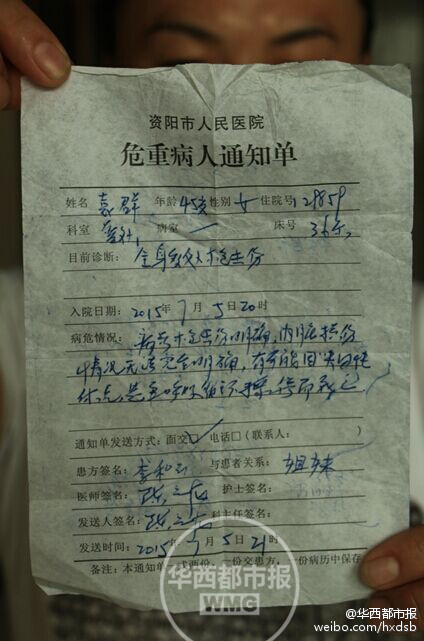 资阳市人民医院
危重病人通知单
姓名 袁群 年龄 45岁 性别 女 住院号 129859
科室 普外 病室 一 床号 36床
目前诊断: 全身多处枪击伤
入院日期: 2015年7月5日20时
病危情况: 枪击伤明确,内脏损伤
情况无法完全明确,有可能因
呼吸循环
通知单发送方式: 面交☑ 电话☐ (联系人: )
患方签名: 李和 与患者关系: 姐妹
医师签名: 护士签名:
发送人签名: 科主任签名:
发送时间: 2015年7月5日21时
备注: 本通知单一式两份,一份交患方,一份病历中保存
华西都市报
WMG
@华西都市报
weibo.com/hxdsb